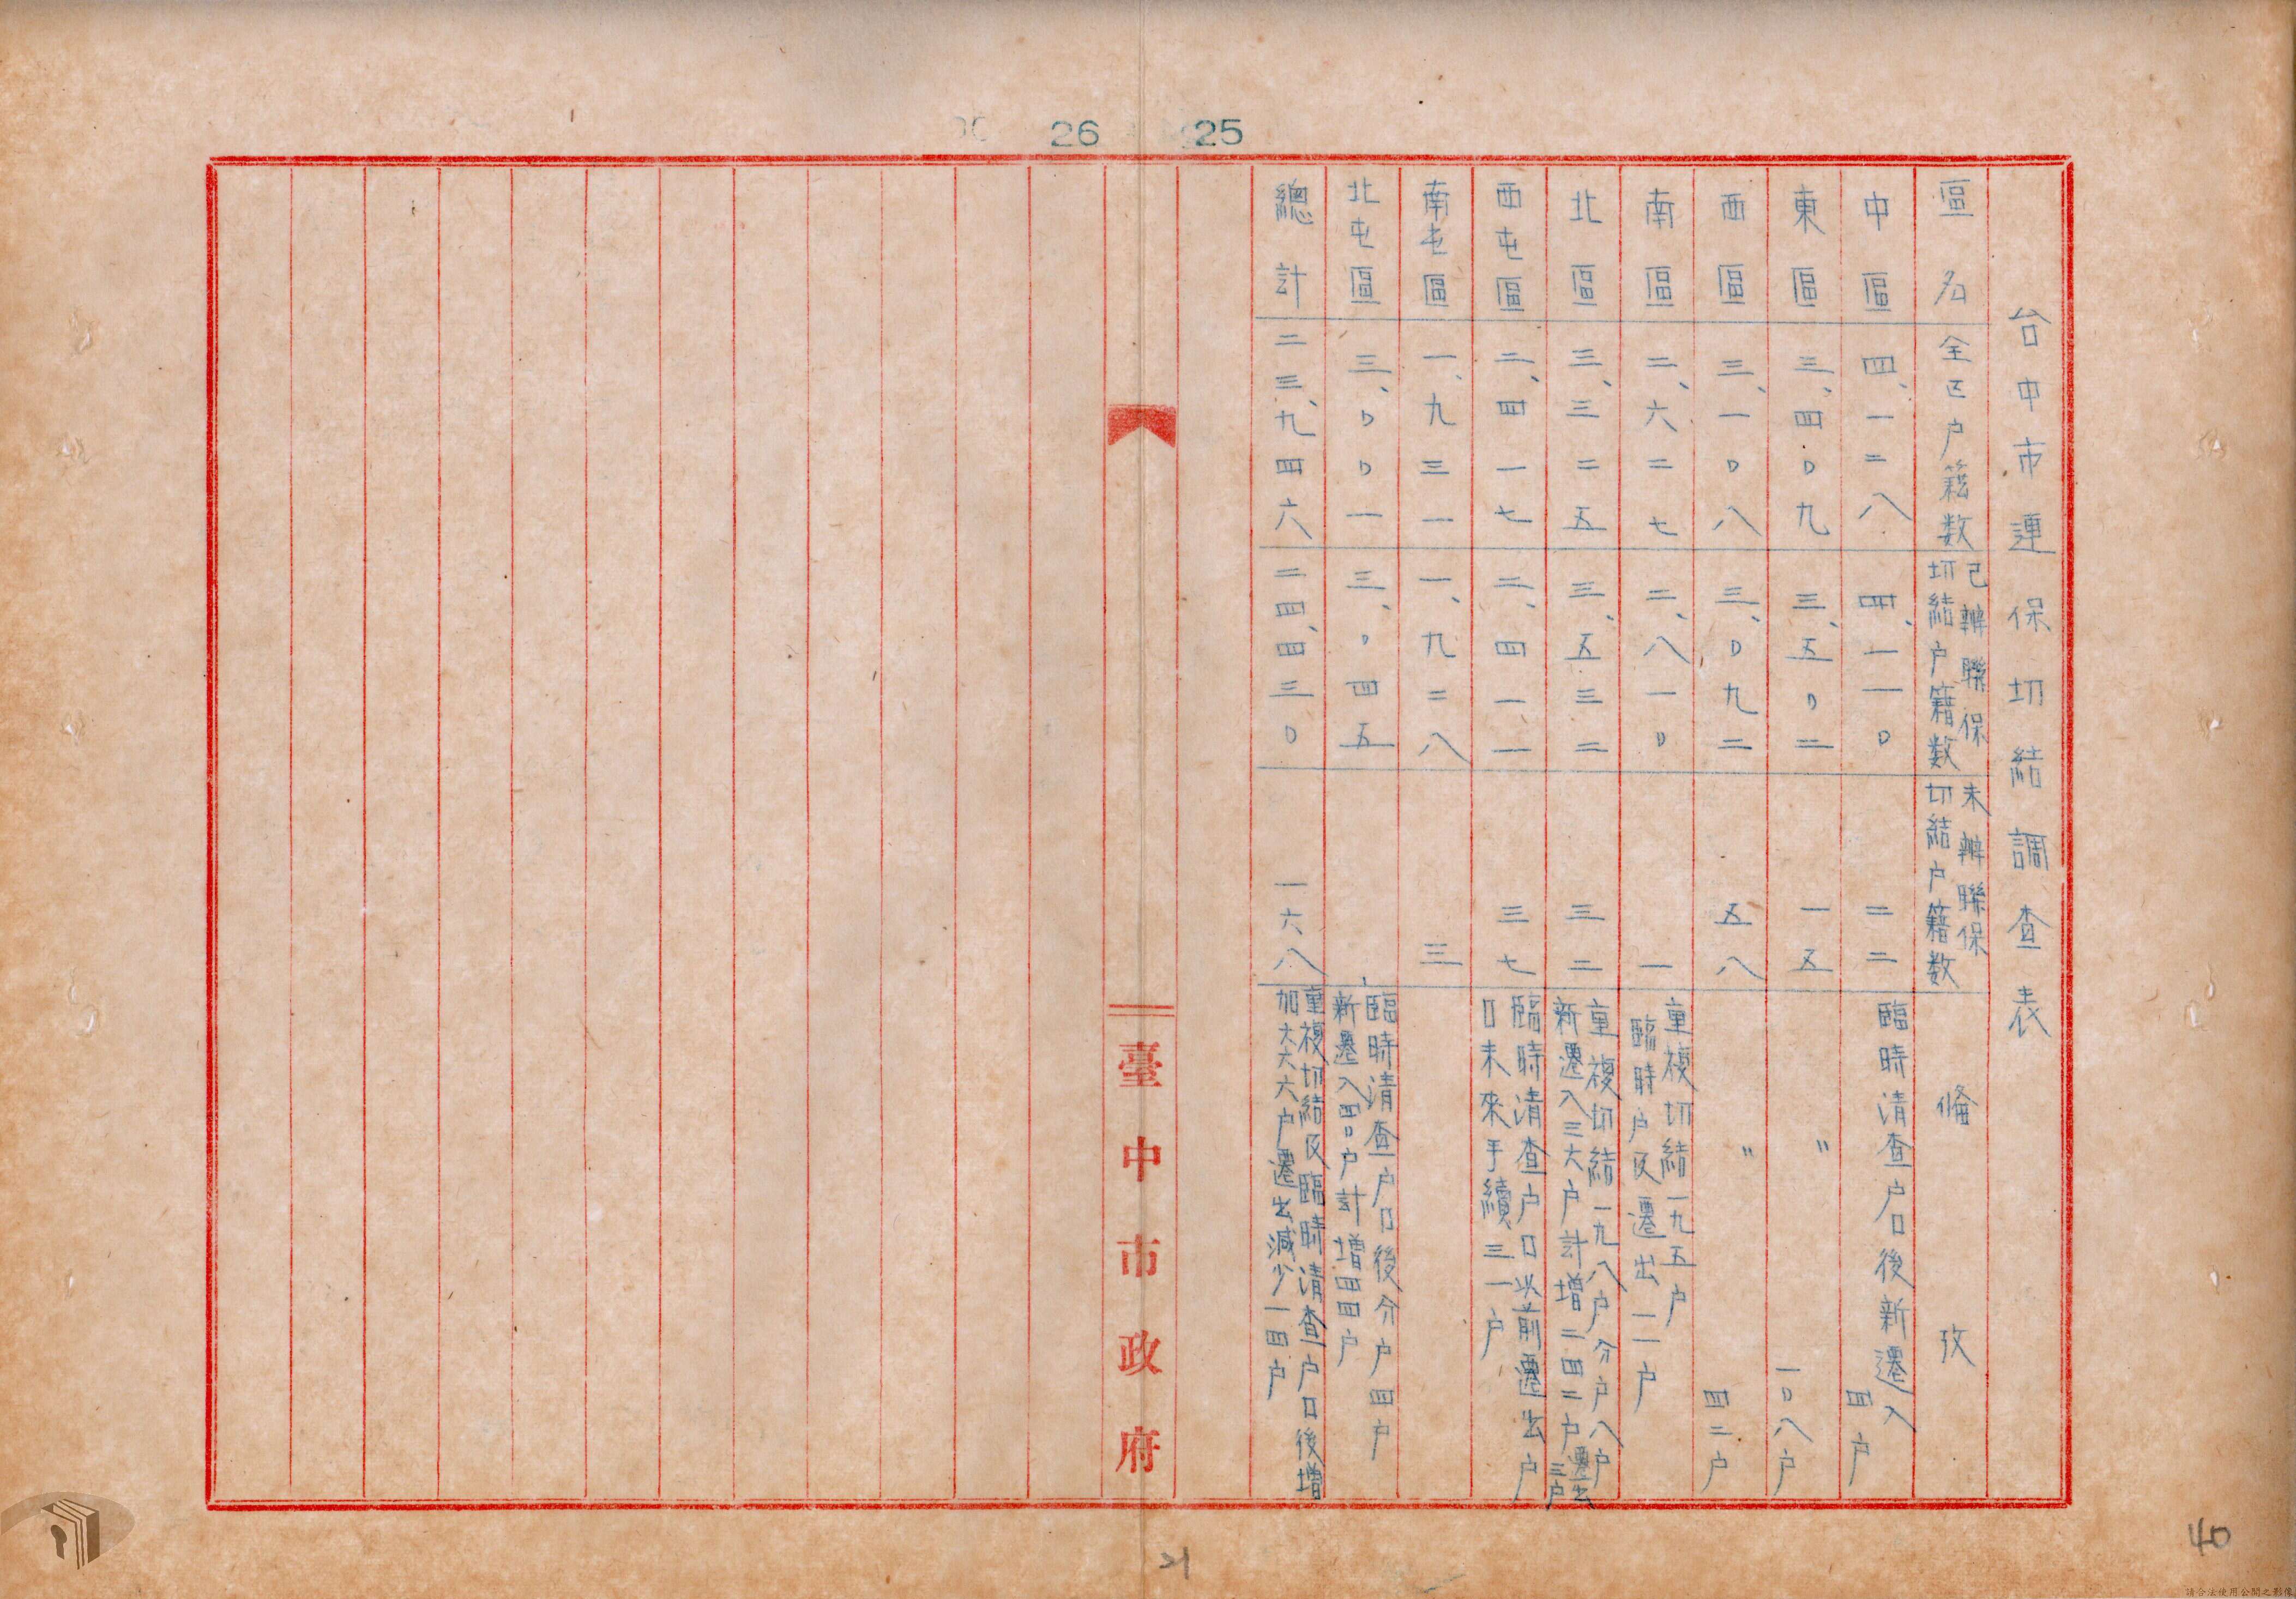 26
25
台中市連保切結調查表
區名
全區户籍数
已辦聯保切結户籍数
未辦聯保切結户籍数
俻攷
中區
四、一二八
四、一一〇
二二
臨時清查户口後新遷入
四户
東區
三、四〇九
三、五〇二
一五
〃
一〇八户
西區
三、一〇八
三、〇九二
五八
〃
四二户
南區
二、六二七
二、八一〇
一
重複切結一九五户
臨時户及遷出一一户
北區
三、三二五
三、五三二
三二
重複切結一九八户分户八户
新遷入三六户計增二四二户遷出三户
西屯區
二、四一七
二、四一一
三七
臨時清查户口以前遷出户
口未來手續三一户
南屯區
一、九三一
一、九二八
三
北屯區
三、〇〇一
三、〇四五
臨時清查户口後分户四户
新遷入四〇户計增四四户
總計
二三、九四六
二四、四三〇
一六八
重複切結及臨時清查户口後增
加六六六户遷出減少一四户
臺中市政府
21
40
請合法使用公開之影像